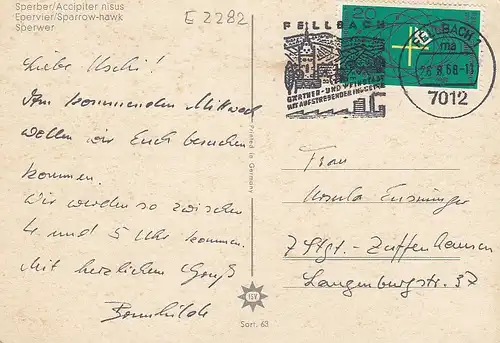 Sperber/Accipiter nisus
Epervier/Sparrow-hawk
Sperwer
E 2282
Liebe Uschi!
Am kommenden Mittwoch
wollen wir Euch besuchen
kommen.
Wir werden so zwischen
4 und 5 Uhr kommen.
Mit herzlichem Gruß
Bernhilde
Printed in Germany
ISV
Sort. 63
FELLBACH
GÄRTNER- UND WEINSTADT
MIT AUFSTREBENDER INDUSTRIE
20
FELLBACH 1
ma
26.8.68-11
7012
Frau
Ursula
7 Stgt.-Zuffenhausen
Langenburgstr. 37